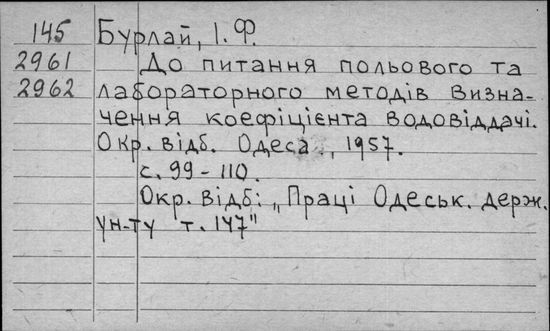 145 Бурлай, І. Ф.
2961 До питання польового та
2962 лабораторного методів визна-
чення коефіцієнта водовіддачі.
Окр. відб. Одеса, 1957.
с. 99-110.
Окр. відб: „Праці Одеськ. держ.
ун-ту т. 147"